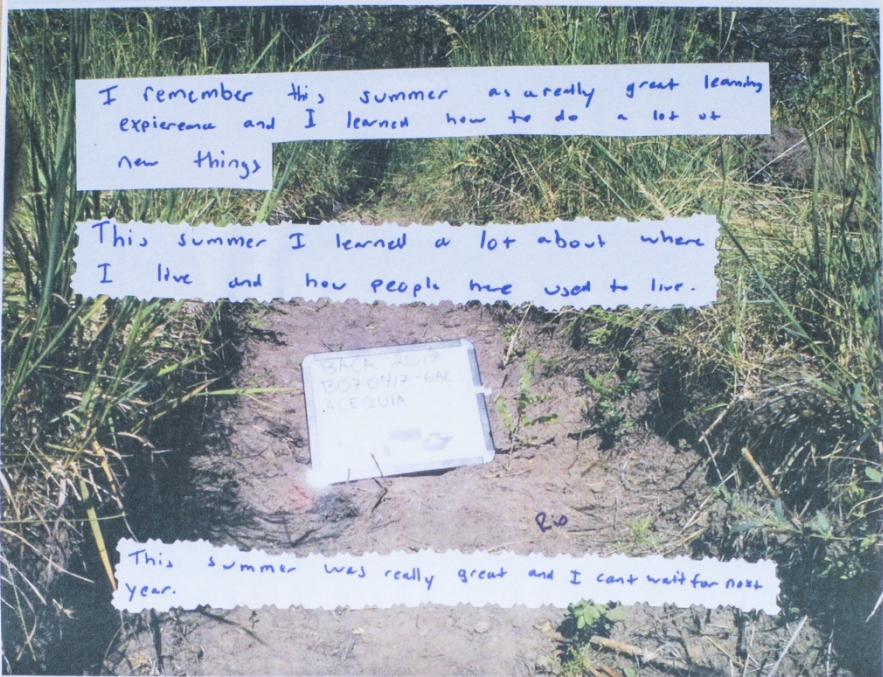 I remember this summer as a really great learning
expierence and I learned how to do a lot of
new things
This summer I learned a lot about where
I live and how people here used to live.
BACA 2017
B070417-6AC
ACEQUIA
Rio
This summer was really great and I cant wait for next
year.